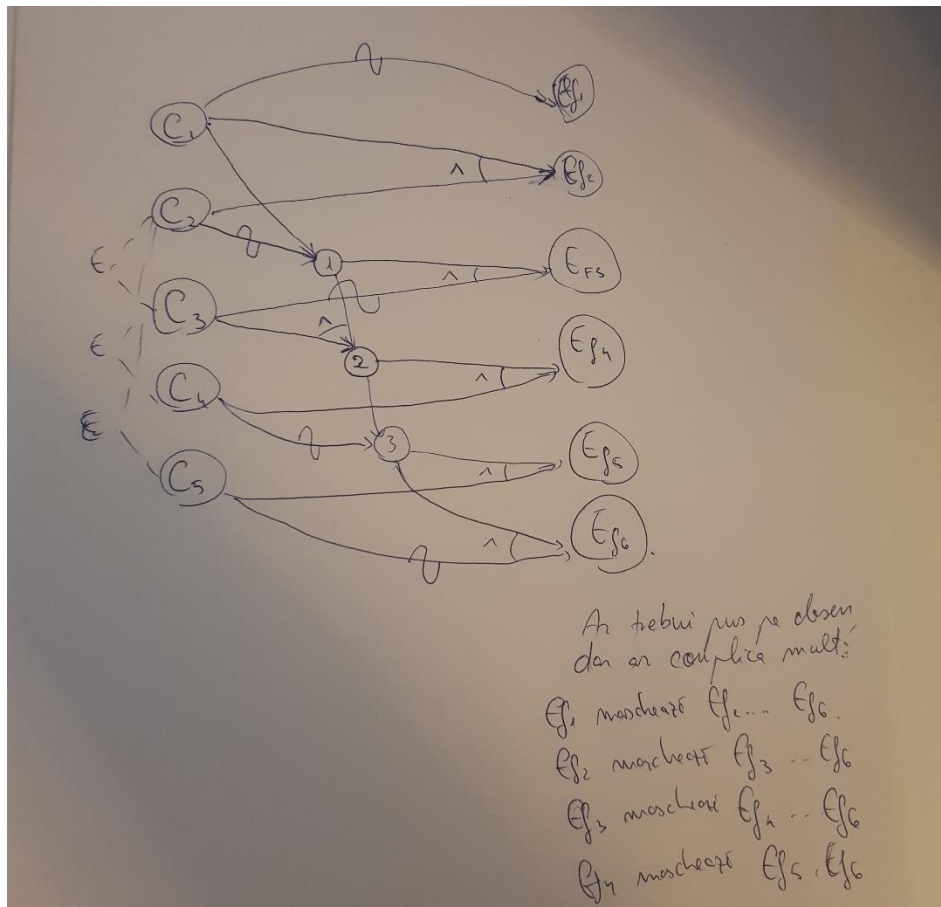 C1
Ef1
C2
Ef2
^
E
1
C3
EFS
^
E
^
2
C4
Ef4
^
E
3
C5
Ef5
^
Ef6.
^
Ar trebui pus pe desen
dar ar complica mult:
Ef1 maschează Ef2... Ef6.
Ef2 maschează Ef3 .. Ef6
Ef3 maschează Ef4 .. Ef6
Ef4 maschează Ef5, Ef6